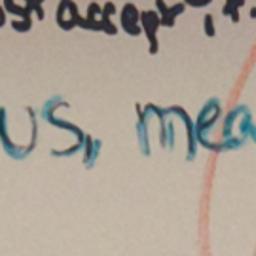 accept
us, mea